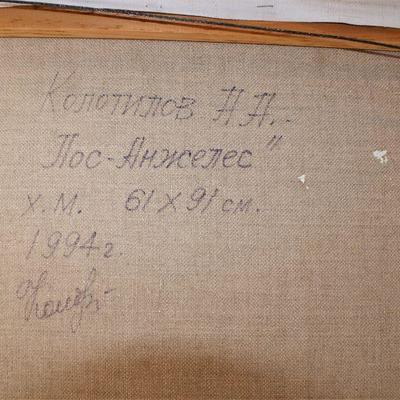 Колотилов А А.
"Лос-Анжелес"
х. м. 61 х 91 см.
1994 г.